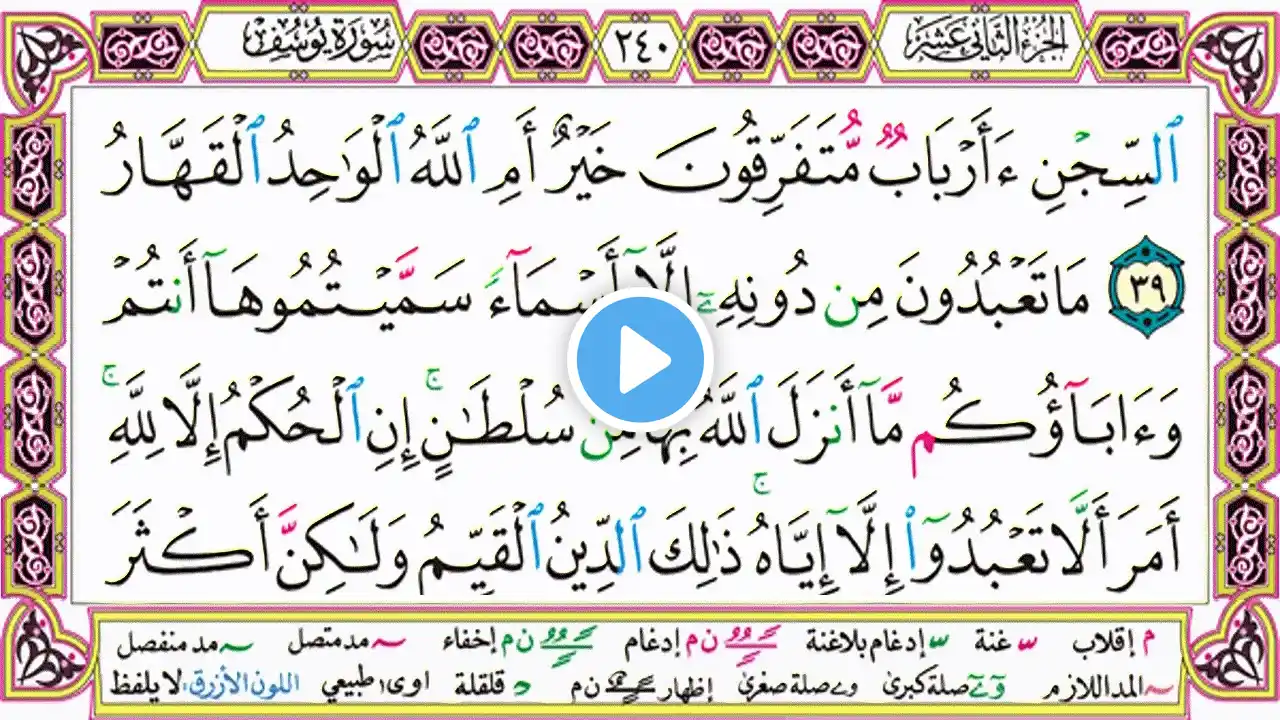 الجزء الثاني عشر
٢٤٠
سورة يوسف
ٱلسِّجْنِ ءَأَرْبَابٌ مُّتَفَرِّقُونَ خَيْرٌ أَمِ ٱللَّهُ ٱلْوَٰحِدُ ٱلْقَهَّارُ
٣٩ مَا تَعْبُدُونَ مِن دُونِهِۦٓ إِلَّآ أَسْمَآءً سَمَّيْتُمُوهَآ أَنتُمْ
وَءَابَآؤُكُم مَّآ أَنزَلَ ٱللَّهُ بِهَا مِن سُلْطَٰنٍ ۚ إِنِ ٱلْحُكْمُ إِلَّا لِلَّهِ ۚ
أَمَرَ أَلَّا تَعْبُدُوٓا۟ إِلَّآ إِيَّاهُ ۚ ذَٰلِكَ ٱلدِّينُ ٱلْقَيِّمُ وَلَٰكِنَّ أَكْثَرَ
م إقلاب غنة إدغام بلاغنة ن م إدغام ن م إخفاء مد متصل مد منفصل
المد اللازم صلة كبرى صلة صغرى إظهار ن م قلقلة اوى طبيعي اللون الأزرق: لا يلفظ